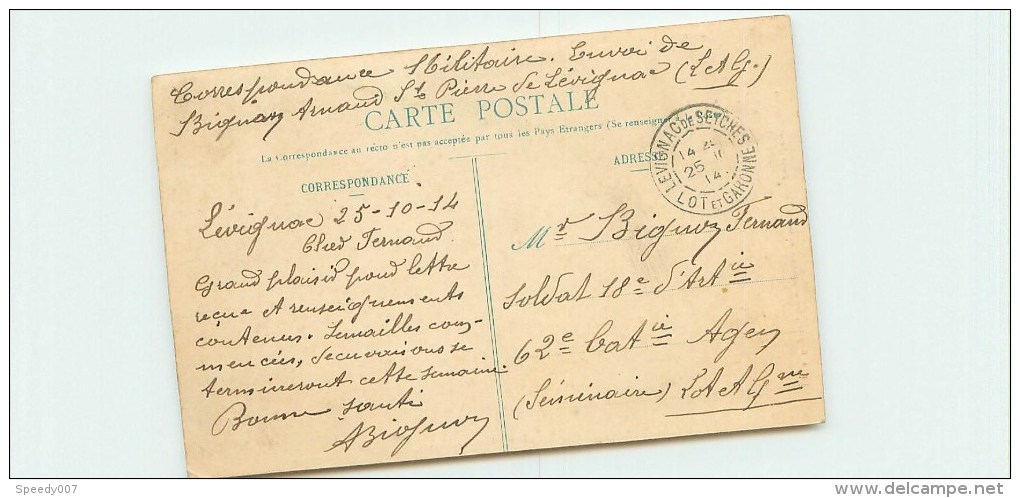 Correspondance Militaire. Envoi de
Bignoz Arnaud St Pierre de Lévignac (L et G.)
CARTE POSTALE
La Correspondance au recto n'est pas acceptée par tous les Pays Etrangers (Se renseigner
CORRESPONDANCE
ADRESSE
LEVIGNAC DE SEYCHES
14
25
14
LOT ET GARONNE
Lévignac 25-10-14
Cher Fernand.
Grand plaisir pour lettre
reçue et renseignements
contenus. Semailles com-
mencées,
termineront cette semaine.
Bonne santé
ABignoz
Mr Bignoz Fernand
Soldat 18e d'Artie
62e Batie Agen
(Séminaire) Lot et Gne
Speedy007
delcampe.net